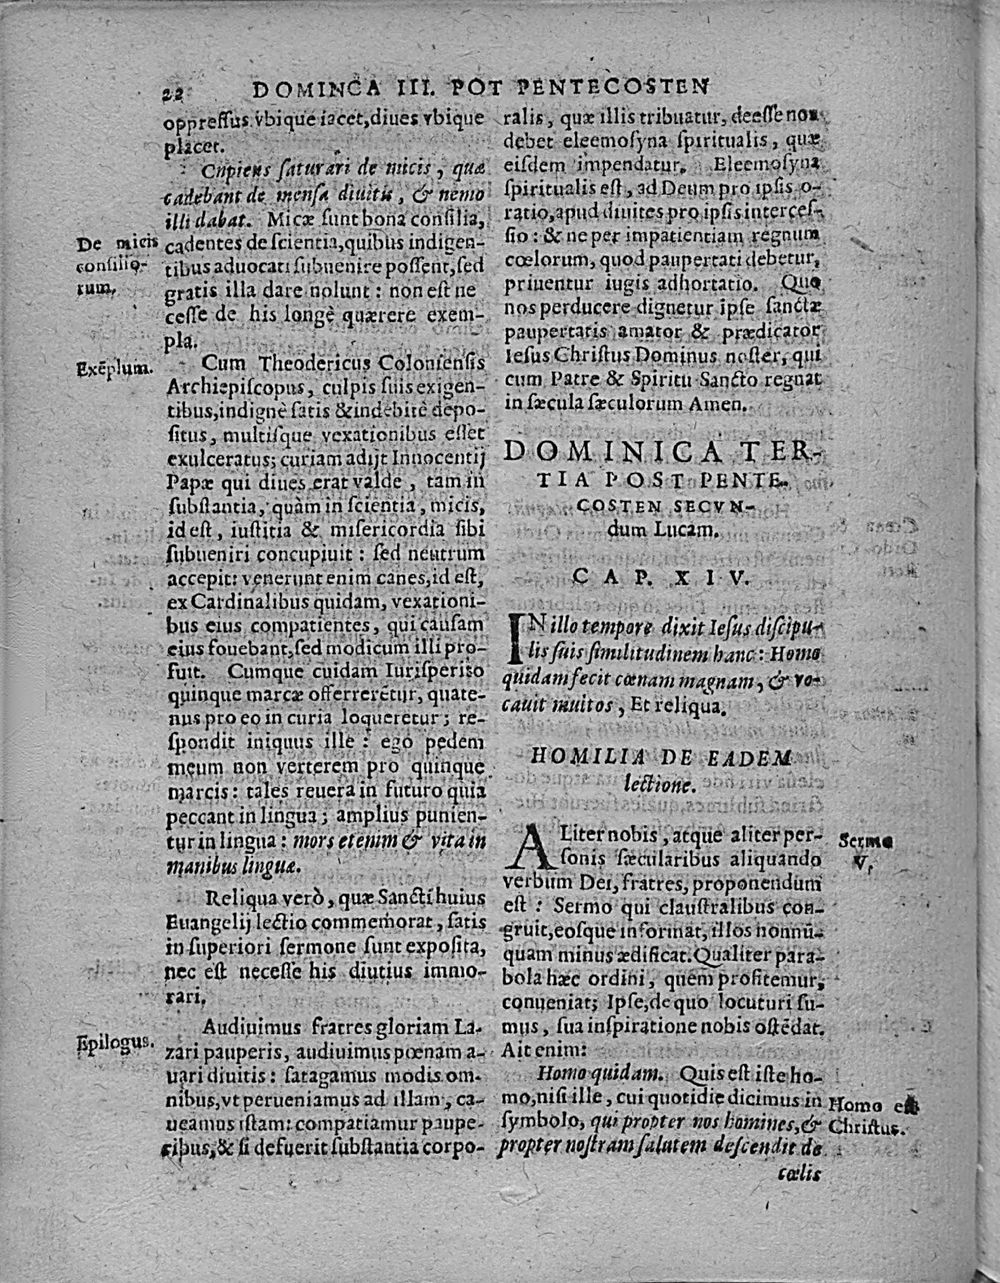 22 DOMINCA III. POT PENTECOSTEN
oppressus vbique iacet, diues vbique
placet.
Cupiens saturari de micis, quæ
cadebant de mensa diuitis, & nemo
illi dabat. Micæ sunt bona consilia,
De micis
consilio-
rum.
cadentes de scientia, quibus indigen-
tibus aduocati subuenire possent, sed
gratis illa dare nolunt: non est ne
cesse de his longè quærere exem-
pla.
Exẽplum.
Cum Theodericus Coloniensis
Archiepiscopus, culpis suis exigen-
tibus, indignè satis & indebitè depo-
situs, multisque vexationibus esset
exulceratus; curiam adijt Innocentij
Papæ qui diues erat valde, tam in
substantia, quàm in scientia, micis,
id est, iustitia & misericordia sibi
subueniri concupiuit: sed neutrum
accepit: venerunt enim canes, id est,
ex Cardinalibus quidam, vexationi-
bus eius compatientes, qui causam
eius fouebant, sed modicum illi pro-
fuit. Cumque cuidam Iurisperito
quinque marcæ offerrerẽtur, quate-
nus pro eo in curia loqueretur; re-
spondit iniquus ille: ego pedem
meum non verterem pro quinque
marcis: tales reuera in futuro quia
peccant in lingua; amplius punien-
tur in lingua: mors etenim & vita in
manibus linguæ.
Reliqua verò, quæ Sancti huius
Euangelij lectio commemorat, satis
in superiori sermone sunt exposita,
nec est necesse his diutius immo-
rari.
Epilogus.
Audiuimus fratres gloriam La-
zari pauperis, audiuimus pœnam a-
uari diuitis: satagamus modis om-
nibus, vt perueniamus ad illam, ca-
ueamus istam: compatiamur paupe-
ribus, & si defuerit substantia corpo-
ralis, quæ illis tribuatur, deesse non
debet eleemosyna spiritualis, quæ
eisdem impendatur. Eleemosyna
spiritualis est, ad Deum pro ipsis o-
ratio, apud diuites pro ipsis interces-
sio: & ne per impatientiam regnum
cœlorum, quod paupertati debetur,
priuentur iugis adhortatio. Quo
nos perducere dignetur ipse sanctæ
paupertatis amator & prædicator
Iesus Christus Dominus noster, qui
cum Patre & Spiritu Sancto regnat
in sæcula sæculorum Amen.
DOMINICA TER-
TIA POST PENTE-
COSTEN SECVN-
dum Lucam.
CAP. XIV.
IN illo tempore dixit Iesus discipu-
lis suis similitudinem hanc: Homo
quidam fecit cœnam magnam, & vo-
cauit multos, Et reliqua.
HOMILIA DE EADEM
lectione.
ALiter nobis, atque aliter per-
sonis sæcularibus aliquando
Sermo
V.
verbum Dei, fratres, proponendum
est: Sermo qui claustralibus con-
gruit, eosque informat, illos nonnũ-
quam minus ædificat. Qualiter para-
bola hæc ordini, quem profitemur,
conueniat; Ipse, de quo locuturi su-
mus, sua inspiratione nobis ostẽdat.
Ait enim:
Homo quidam. Quis est iste ho-
mo, nisi ille, cui quotidie dicimus in
Homo est
Christus.
symbolo, qui propter nos homines, &
propter nostram salutem descendit de
cœlis